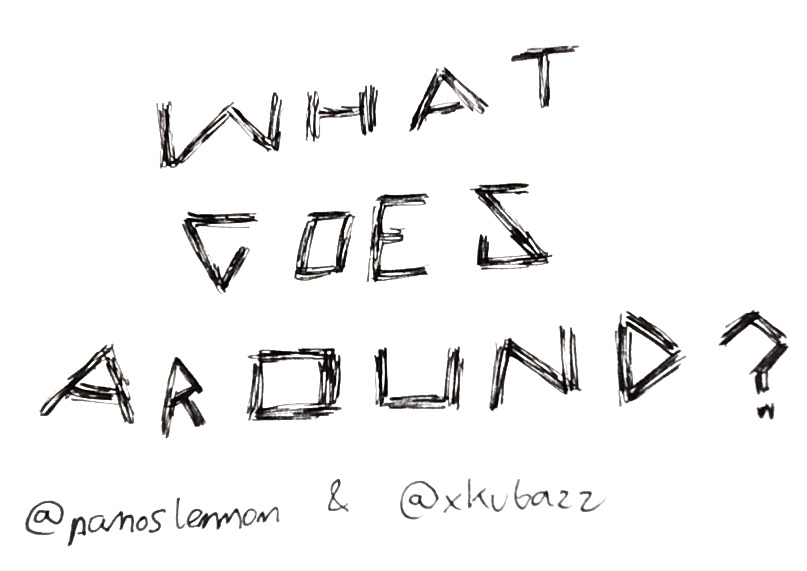 WHAT
GOES
AROUND?
@panoslemmon & @xkubazz